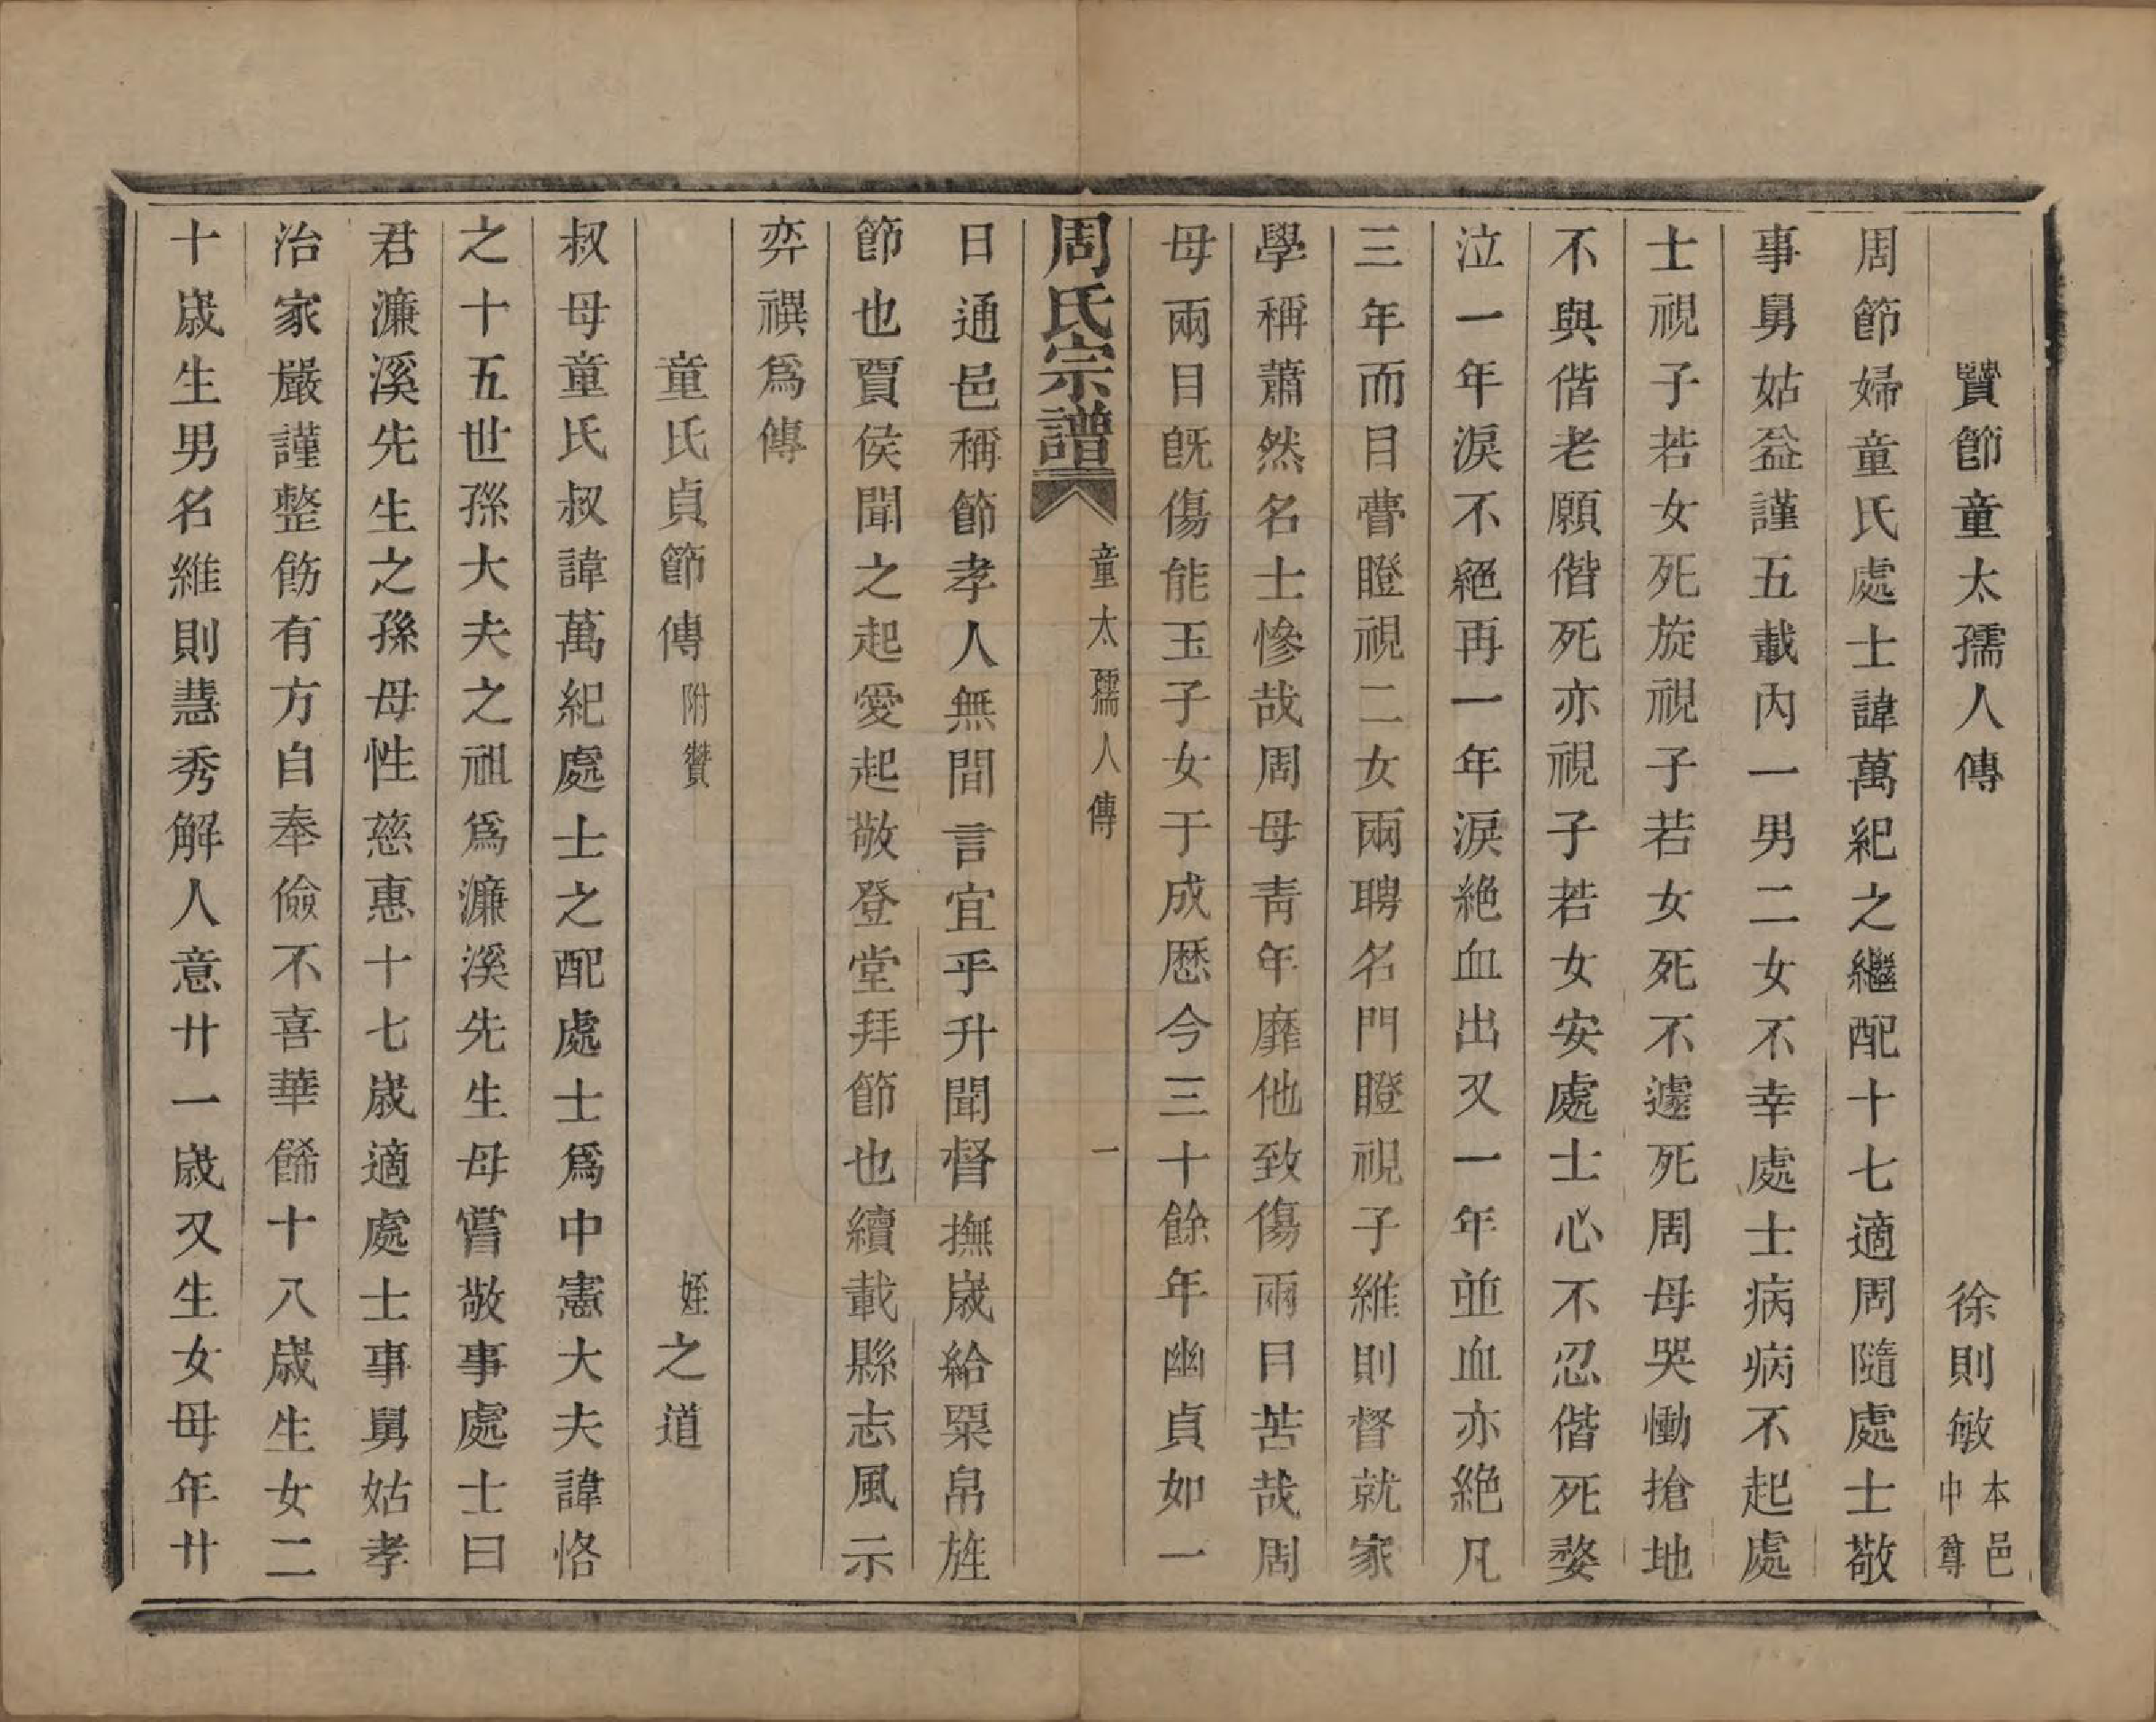 賢節童太孺人傳 徐則敏 本邑中尊
周節婦童氏處士諱萬紀之繼配十七適周隨處士敬
事舅姑益謹五載內一男二女不幸處士病病不起處
士視子若女死旋視子若女死不遽死周母哭慟搶地
不與偕老願偕死亦視子若女安處士心不忍偕死婺
泣一年淚不絕再一年淚絶血出又一年並血亦絶凡
三年而目瞢瞪視二女兩聘名門瞪視子維則督就家
學稱蕭然名士慘哉周母靑年靡他致傷兩目苦哉周
母兩目旣傷能玉子女于成歷今三十餘年幽貞如一
周氏宗譜 童太孺人傳 一
日通邑稱節孝人無間言宜乎升聞督撫歲給粟帛旌
節也賈侯聞之起愛起敬登堂拜節也續載縣志風示
弈禩爲傳
童氏貞節傳 附贊 姪之道
叔母童氏叔諱萬紀處士之配處士爲中憲大夫諱恪
之十五世孫大夫之祖爲濂溪先生母嘗敬事處士曰
君濂溪先生之孫母性慈惠十七歲適處士事舅姑孝
治家嚴謹整飭有方自奉儉不喜華餙十八歲生女二
十歲生男名維則慧秀解人意廿一歲又生女母年廿